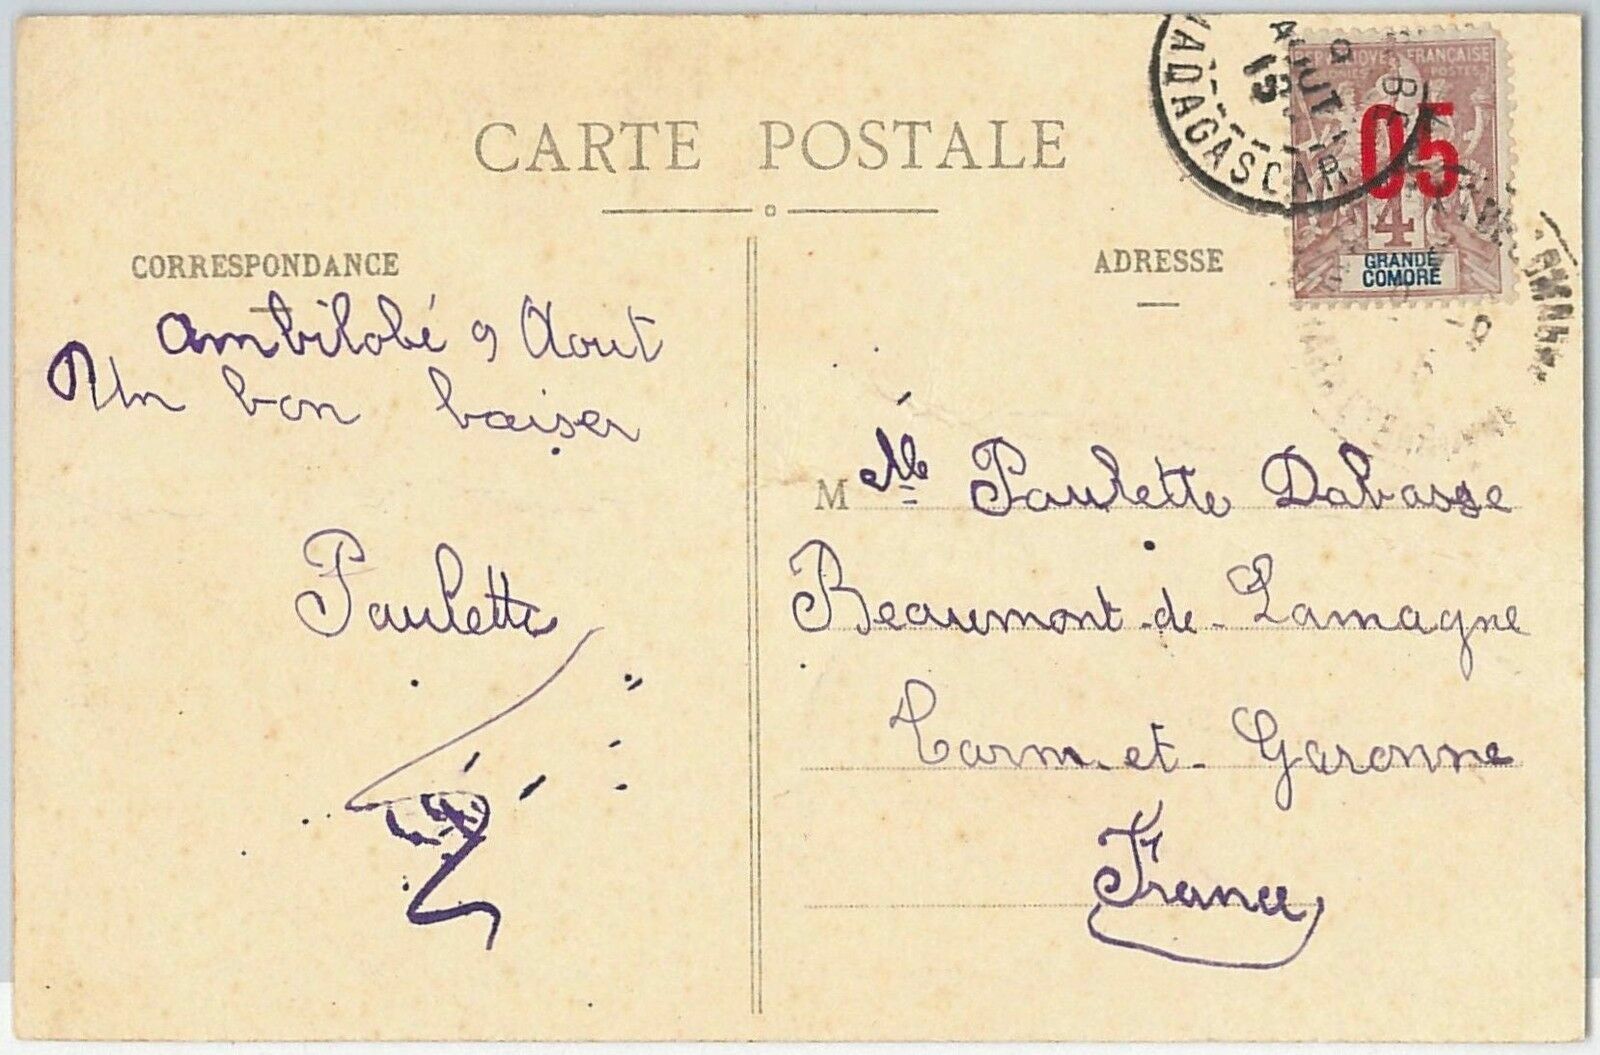 CARTE POSTALE
CORRESPONDANCE
Ambilobé 9 Aout
Un bon baiser
Paulette
ADRESSE
M elle Paulette Dabasse
Beaumont-de-Lamagne
Tarn-et-Garonne
France
REPUBLIQUE FRANÇAISE
COLONIES POSTES
05
4
GRANDE
COMORE
9
AOUT
MADAGASCAR